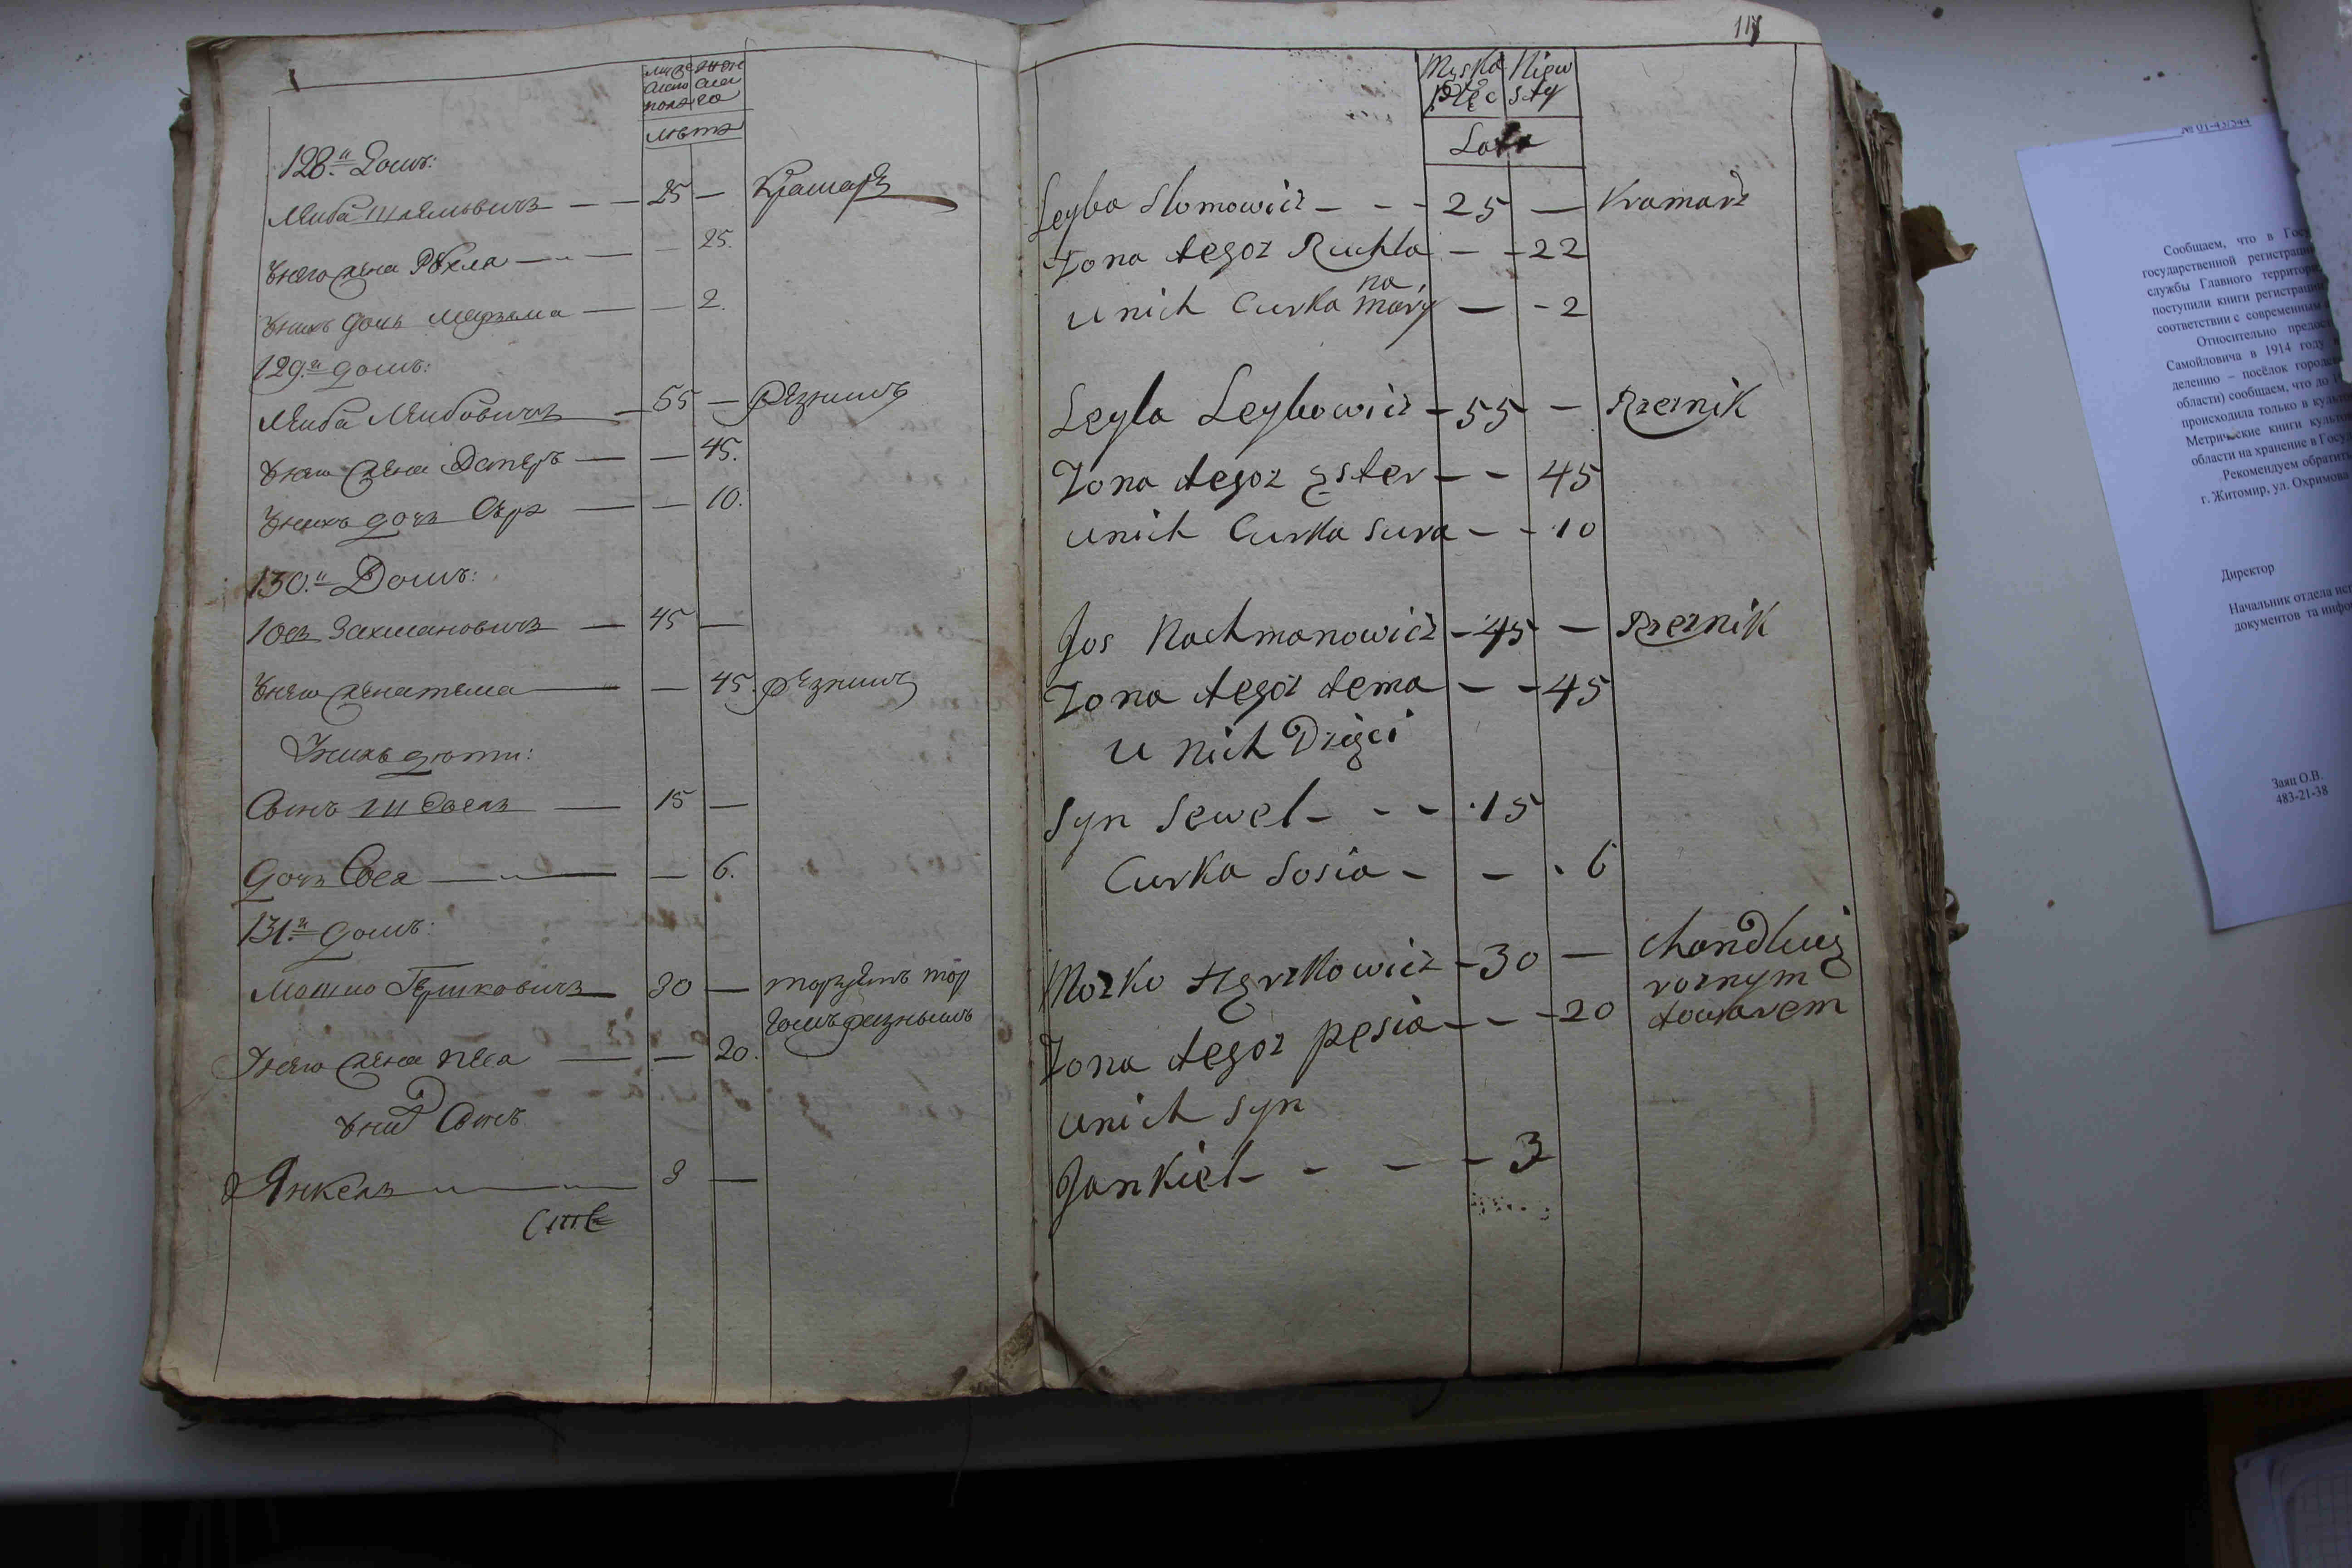 мужеска женска
пола го
лѣта
128.й Домъ:
Лейба Шлемовичъ — — 25 — Крамаръ
Унего жена Рухла — — — 25.
Унихъ дочь Марьяма — — 2.
129.й домъ:
Лейба Лейбовичъ — 55 — Резникъ
Унего жена Эстеръ — — 45.
Унихъ дочь Сура — — 10.
130.й Домъ:
Иосъ Захмановичъ — 45 —
Унего жена тема — — 45. Резникъ
Унихъ дѣти:
Сынъ Шевель — 15 —
Дочь Сося — — 6.
131.й домъ:
Мошко Гершковичъ — 30 — торгуетъ тор
гомъ разнымъ
Унего жена песа — — 20.
Уних Сынъ
Янкель — 3 —
117
Męska Niew
Płec sty
Lata
Leyba Slomowicz - - - 25 — Kramarz
Zona tegoz Ruchla — - 22
na
u nich Curka Mary — - 2
Leyba Leybowicz - 55 — Rzeznik
Zona tegoz Ester - - 45
u nich Curka Sura - - 10
Jos Nachmanowicz - 45 — Rzeznik
Zona tegoz tema - - 45
u nich Dzieci
Syn Sewel - - - 15
Curka Sosia - - 6
Mozko Herzkowicz - 30 — chandluię
roznym
towarem
Zona tegoz pesia - - - 20
u nich syn
Jankiel - - - - 3
№ 01-43/544
Сообщаем, что в
государственной регистрации
службы Главного
поступили книги регистрации
соответствии с современным
Относительно
Самойловича в 1914 году
делению – посёлок
области) сообщаем, что до
происходила только в
Метрические книги
области на хранение в
Рекомендуем обратить
г. Житомир, ул. Охримова
Директор
Начальник отдела
документов та
Заяц О.В.
483-21-38